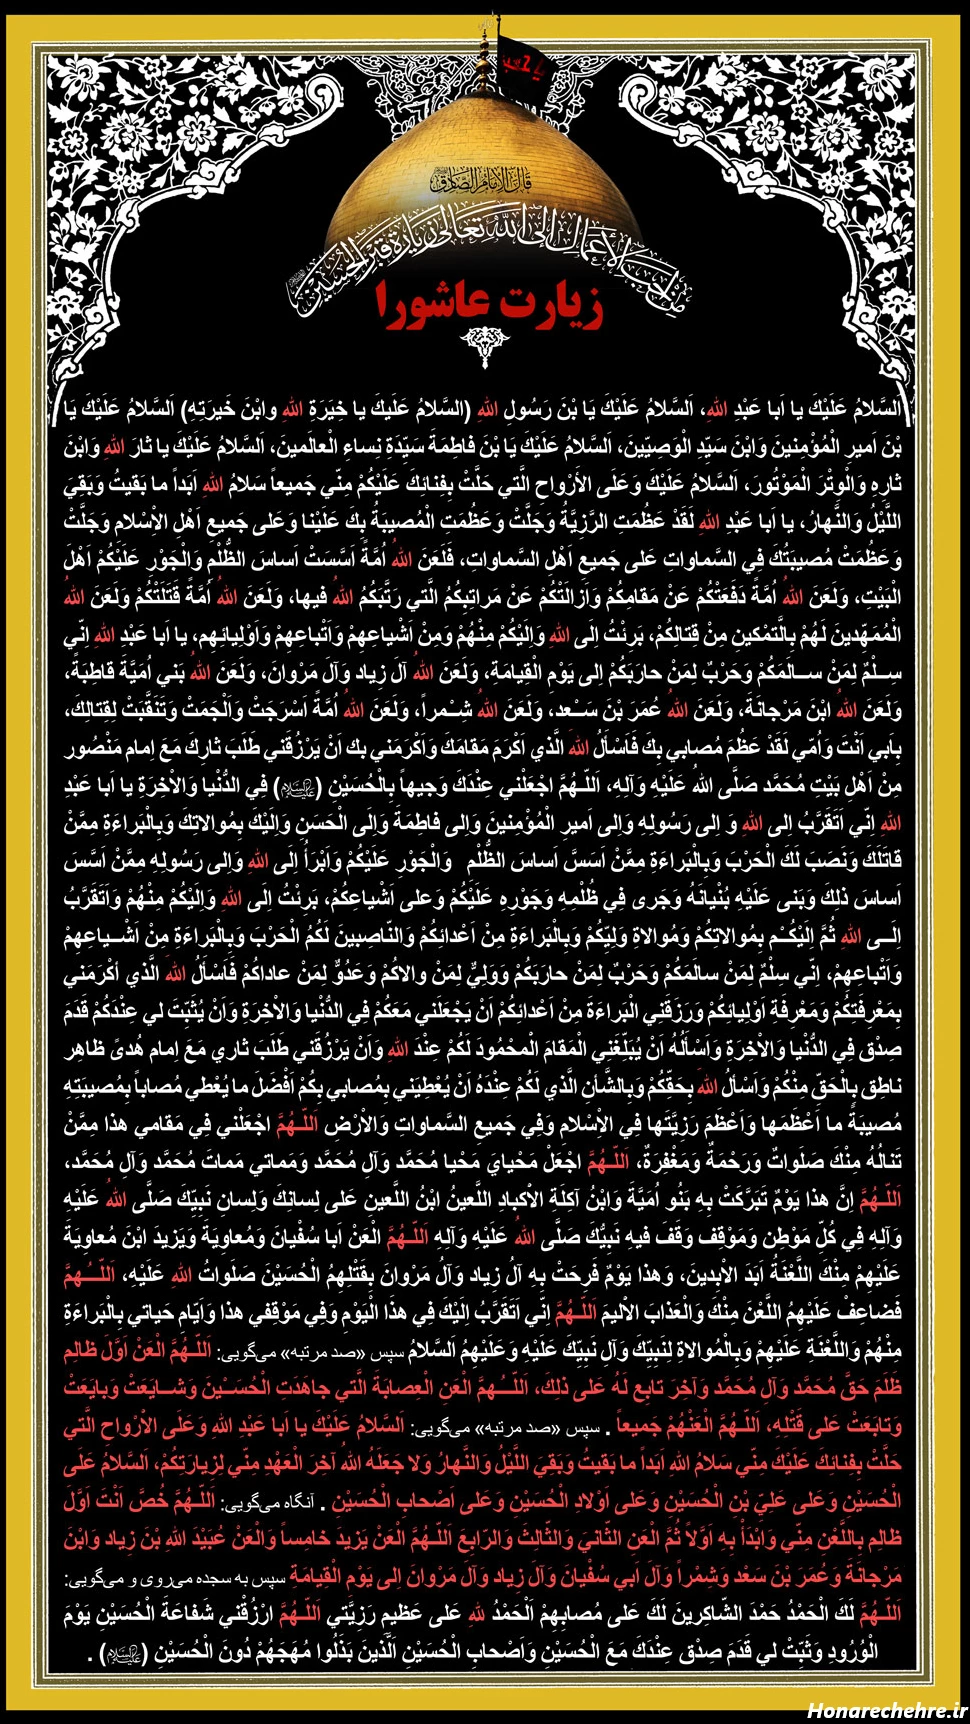 قال الإمام الصادق
من أحب الأعمال إلى الله تعالى زيارة قبر الحسين
زیارت عاشورا
اَلسَّلامُ عَلَيْكَ يا اَبا عَبْدِ اللهِ، اَلسَّلامُ عَلَيْكَ يَا بْنَ رَسُولِ اللهِ (السَّلامُ عَلَيكَ يا خِيَرَةِ اللهِ وابْنَ خَيرَتِهِ) اَلسَّلامُ عَلَيْكَ يَا
بْنَ اَميرِ الْمُؤْمِنينَ وَابْنَ سَيِّدِ الْوَصِيّينَ، اَلسَّلامُ عَلَيْكَ يا بْنَ فاطِمَةَ سَيِّدَةِ نِساءِ الْعالَمينَ، اَلسَّلامُ عَلَيْكَ يا ثارَ اللهِ وَابْنَ
ثارِهِ وَالْوِتْرَ الْمَوْتُورَ، اَلسَّلامُ عَلَيْكَ وَعَلَى الأَرْواحِ الَّتي حَلَّتْ بِفِنائِكَ عَلَيْكُمْ مِنّي جَميعاً سَلامُ اللهِ اَبَداً ما بَقيتُ وَبَقِيَ
اللَّيْلُ وَالنَّهارُ، يا اَبا عَبْدِ اللهِ لَقَدْ عَظُمَتِ الرَّزِيَّةُ وَجَلَّتْ وَعَظُمَتِ الْمُصيبَةُ بِكَ عَلَيْنا وَعَلى جَميعِ اَهْلِ الاِْسْلامِ وَجَلَّتْ
وَعَظُمَتْ مُصيبَتُكَ فِي السَّماواتِ عَلى جَميعِ اَهْلِ السَّماواتِ، فَلَعَنَ اللهُ اُمَّةً اَسَّسَتْ اَساسَ الظُّلْمِ وَالْجَوْرِ عَلَيْكُمْ اَهْلَ
الْبَيْتِ، وَلَعَنَ اللهُ اُمَّةً دَفَعَتْكُمْ عَنْ مَقامِكُمْ وَاَزالَتْكُمْ عَنْ مَراتِبِكُمُ الَّتي رَتَّبَكُمُ اللهُ فيها، وَلَعَنَ اللهُ اُمَّةً قَتَلَتْكُمْ وَلَعَنَ اللهُ
الْمُمَهِّدينَ لَهُمْ بِالَّتمْكينِ مِنْ قِتالِكُمْ، بَرِئْتُ اِلَى اللهِ وَاِلَيْكُمْ مِنْهُمْ وَمِنْ اَشْياعِهِمْ وَاَتْباعِهِمْ وَاَوْلِيائِهِم، يا اَبا عَبْدِ اللهِ اِنّي
سِـلْمٌ لِمَنْ سـالَمَكُمْ وَحَرْبٌ لِمَنْ حارَبَكُمْ اِلى يَوْمِ الْقِيامَةِ، وَلَعَنَ اللهُ آلَ زِياد وَآلَ مَرْوانَ، وَلَعَنَ اللهُ بَني اُمَيَّةَ قاطِبَةً،
وَلَعَنَ اللهُ ابْنَ مَرْجانَةَ، وَلَعَنَ اللهُ عُمَرَ بْنَ سَـعْد، وَلَعَنَ اللهُ شـمْراً، وَلَعَنَ اللهُ اُمَّةً اَسْرَجَتْ وَاَلْجَمَتْ وَتَنَقَّبَتْ لِقِتالِكَ،
بِاَبي اَنْتَ وَاُمّي لَقَدْ عَظُمَ مُصابي بِكَ فَاَسْأَلُ اللهَ الَّذي اَكْرَمَ مَقامَكَ وَاَكْرَمَني بك اَنْ يَرْزُقَني طَلَبَ ثارِكَ مَعَ اِمام مَنْصُور
مِنْ اَهْلِ بَيْتِ مُحَمَّد صَلَّى اللهُ عَلَيْهِ وَآلِهِ، اَللّـهُمَّ اجْعَلْني عِنْدَكَ وَجيهاً بِالْحُسَيْنِ (عليه‌السلام) فِي الدُّنْيا وَالاْخِرَةِ يا اَبا عَبْدِ
اللهِ اِنّي اَتَقَرَّبُ اِلى اللهِ وَ اِلى رَسُولِهِ وَاِلى اَميرِ الْمُؤْمِنينَ وَاِلى فاطِمَةَ وَاِلَى الْحَسَنِ وَاِلَيْكَ بِمُوالاتِكَ وَبِالْبَراءَةِ مِمَّنْ
قاتَلَكَ وَنَصَبَ لَكَ الْحَرْبَ وَبِالْبَراءَةِ مِمَّنْ اَسَسَّ اَساسَ الظُّلْمِ وَالْجَوْرِ عَلَيْكُمْ وَاَبْرَأُ اِلَى اللهِ وَاِلى رَسُولِهِ مِمَّنْ اَسَّسَ
اَساسَ ذلِكَ وَبَنى عَلَيْهِ بُنْيانَهُ وَجَرى فِي ظُلْمِهِ وَجَوْرِهِ عَلَيْكُمْ وَعلى اَشْياعِكُمْ، بَرِئْتُ اِلَى اللهِ وَاِلَيْكُمْ مِنْهُمْ وَاَتَقَرَّبُ
اِلَــى اللهِ ثُمَّ اِلَيْكُـمْ بِمُوالاتِكُمْ وَمُوالاةِ وَلِيِّكُمْ وَبِالْبَراءَةِ مِنْ اَعْدائِكُمْ وَالنّاصِبينَ لَكُمُ الْحَرْبَ وَبِالْبَراءَةِ مِنْ اَشْـياعِهِمْ
وَاَتْباعِهِمْ، اِنّي سِلْمٌ لِمَنْ سالَمَكُمْ وَحَرْبٌ لِمَنْ حارَبَكُمْ وَوَلِيٌّ لِمَنْ والاكُمْ وَعَدُوٌّ لِمَنْ عاداكُمْ فَاَسْأَلُ اللهَ الَّذي أكْرَمَني
بِمَعْرِفَتِكُمْ وَمَعْرِفَةِ اَوْلِيائِكُمْ وَرَزَقَنِي الْبَراءَةَ مِنْ اَعْدائِكُمْ اَنْ يَجْعَلَني مَعَكُمْ فِي الدُّنْيا وَالاْخِرَةِ وَاَنْ يُثَبِّتَ لي عِنْدَكُمْ قَدَمَ
صِدْق فِي الدُّنْيا وَالاْخِرَةِ وَاَسْأَلُهُ اَنْ يُبَلِّغَنِي الْمَقامَ الْمَحْمُودَ لَكُمْ عِنْدَ اللهِ وَاَنْ يَرْزُقَني طَلَبَ ثاري مَعَ اِمام هُدىً ظاهِر
ناطِق بِالْحَقِّ مِنْكُمْ وَاَسْألُ اللهَ بِحَقِّكُمْ وَبِالشَّأنِ الَّذي لَكُمْ عِنْدَهُ اَنْ يُعْطِيَني بِمُصابي بِكُمْ اَفْضَلَ ما يُعْطي مُصاباً بِمُصيبَتِهِ
مُصيبَةً ما اَعْظَمَها وَاَعْظَمَ رَزِيَّتَها فِي الاِْسْلامِ وَفِي جَميعِ السَّماواتِ وَالاْرْضِ اَللّـهُمَّ اجْعَلْني فِي مَقامي هذا مِمَّنْ
تَنالُهُ مِنْكَ صَلَواتٌ وَرَحْمَةٌ وَمَغْفِرَةٌ، اَللّـهُمَّ اجْعَلْ مَحْيايَ مَحْيا مُحَمَّد وَآلِ مُحَمَّد وَمَماتي مَماتَ مُحَمَّد وَآلِ مُحَمَّد،
اَللّـهُمَّ اِنَّ هذا يَوْمٌ تَبَرَّكَتْ بِهِ بَنُو اُمَيَّةَ وَابْنُ آكِلَةِ الاَْكبادِ اللَّعينُ ابْنُ اللَّعينِ عَلى لِسانِكَ وَلِسانِ نَبِيِّكَ صَلَّى اللهُ عَلَيْهِ
وَآلِهِ فِي كُلِّ مَوْطِن وَمَوْقِف وَقَفَ فيهِ نَبِيُّكَ صَلَّى اللهُ عَلَيْهِ وَآلِهِ اَللّـهُمَّ الْعَنْ اَبا سُفْيانَ وَمُعاوِيَةَ وَيَزيدَ ابْنَ مُعاوِيَةَ
عَلَيْهِمْ مِنْكَ اللَّعْنَةُ اَبَدَ الاْبِدينَ، وَهذا يَوْمٌ فَرِحَتْ بِهِ آلُ زِياد وَآلُ مَرْوانَ بِقَتْلِهِمُ الْحُسَيْنَ صَلَواتُ اللهِ عَلَيْهِ، اَللّـــهُمَّ
فَضاعِفْ عَلَيْهِمُ اللَّعْنَ مِنْكَ وَالْعَذابَ الاَْليمَ اَللّـهُمَّ اِنّي اَتَقَرَّبُ اِلَيْكَ فِي هذَا الْيَوْمِ وَفِي مَوْقِفي هذا وَاَيّامِ حَياتي بِالْبَراءَةِ
مِنْهُمْ وَاللَّعْنَةِ عَلَيْهِمْ وَبِالْمُوالاةِ لِنَبِيِّكَ وَآلِ نَبِيِّكَ عَلَيْهِ وَعَلَيْهِمُ اَلسَّلامُ سپس «صد مرتبه» می‌گویی: اَللّـهُمَّ الْعَنْ اَوَّلَ ظالِم
ظَلَمَ حَقَّ مُحَمَّد وَآلِ مُحَمَّد وَآخِرَ تابِع لَهُ عَلى ذلِكَ، اَللّـــهُمَّ الْعَنِ الْعِصابَةَ الَّتي جاهَدَتِ الْحُسَـيْنَ وَشـايَعَتْ وَبايَعَتْ
وَتابَعَتْ عَلى قَتْلِهِ، اَللّـهُمَّ الْعَنْهُمْ جَميعاً . سپس «صد مرتبه» می‌گویی: اَلسَّلامُ عَلَيْكَ يا اَبا عَبْدِ اللهِ وَعَلَى الاَْرْواحِ الَّتي
حَلَّتْ بِفِنائِكَ عَلَيْكَ مِنّي سَلامُ اللهِ اَبَداً ما بَقيتُ وَبَقِيَ اللَّيْلُ وَالنَّهارُ وَلا جَعَلَهُ اللهُ آخِرَ الْعَهْدِ مِنّي لِزِيارَتِكُمْ، اَلسَّلامُ عَلَى
الْحُسَيْنِ وَعَلى عَلِيِّ بْنِ الْحُسَيْنِ وَعَلى اَوْلادِ الْحُسَيْنِ وَعَلى اَصْحابِ الْحُسَيْنِ . آنگاه می‌گویی: اَللّـهُمَّ خُصَّ اَنْتَ اَوَّلَ
ظالِم بِاللَّعْنِ مِنّي وَابْدَأْ بِهِ اَوَّلاً ثُمَّ الْعَنِ الثّانيَ وَالثّالِثَ وَالرّابِعَ اَللّـهُمَّ الْعَنْ يَزيدَ خامِساً وَالْعَنْ عُبَيْدَ اللهِ بْنَ زِياد وَابْنَ
مَرْجانَةَ وَعُمَرَ بْنَ سَعْد وَشِمْراً وَآلَ اَبي سُفْيانَ وَآلَ زِياد وَآلَ مَرْوانَ اِلى يَوْمِ الْقِيامَةِ سپس به سجده می‌روی و می‌گویی:
اَللّـهُمَّ لَكَ الْحَمْدُ حَمْدَ الشّاكِرينَ لَكَ عَلى مُصابِهِمْ اَلْحَمْدُ للهِ عَلى عَظيمِ رَزِيَّتي اَللّـهُمَّ ارْزُقْني شَفاعَةَ الْحُسَيْنِ يَوْمَ
الْوُرُودِ وَثَبِّتْ لي قَدَمَ صِدْق عِنْدَكَ مَعَ الْحُسَيْنِ وَاَصْحابِ الْحُسَيْنِ اَلَّذينَ بَذَلُوا مُهَجَهُمْ دُونَ الْحُسَيْنِ (عليه‌السلام) .
Honarechehre.ir